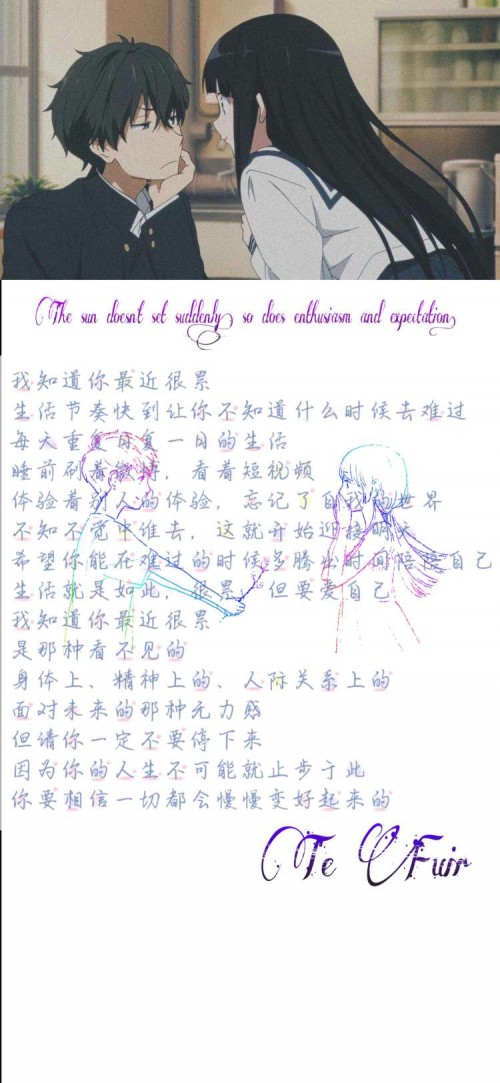 The sun doesn't set suddenly, so does enthusiasm and expectation
我知道你最近很累
生活节奏快到让你不知道什么时候去难过
每天重复日复一日的生活
睡前刷着微博，看着短视频
体验着别人的体验，忘记了自我的世界
不知不觉中睡去，这就开始迎接明天
希望你能在难过的时候多腾出时间陪陪自己
生活就是如此，很累，但要爱自己
我知道你最近很累
是那种看不见的
身体上、精神上的、人际关系上的
面对未来的那种无力感
但请你一定不要停下来
因为你的人生不可能就止步于此
你要相信一切都会慢慢变好起来的
Te Fuir